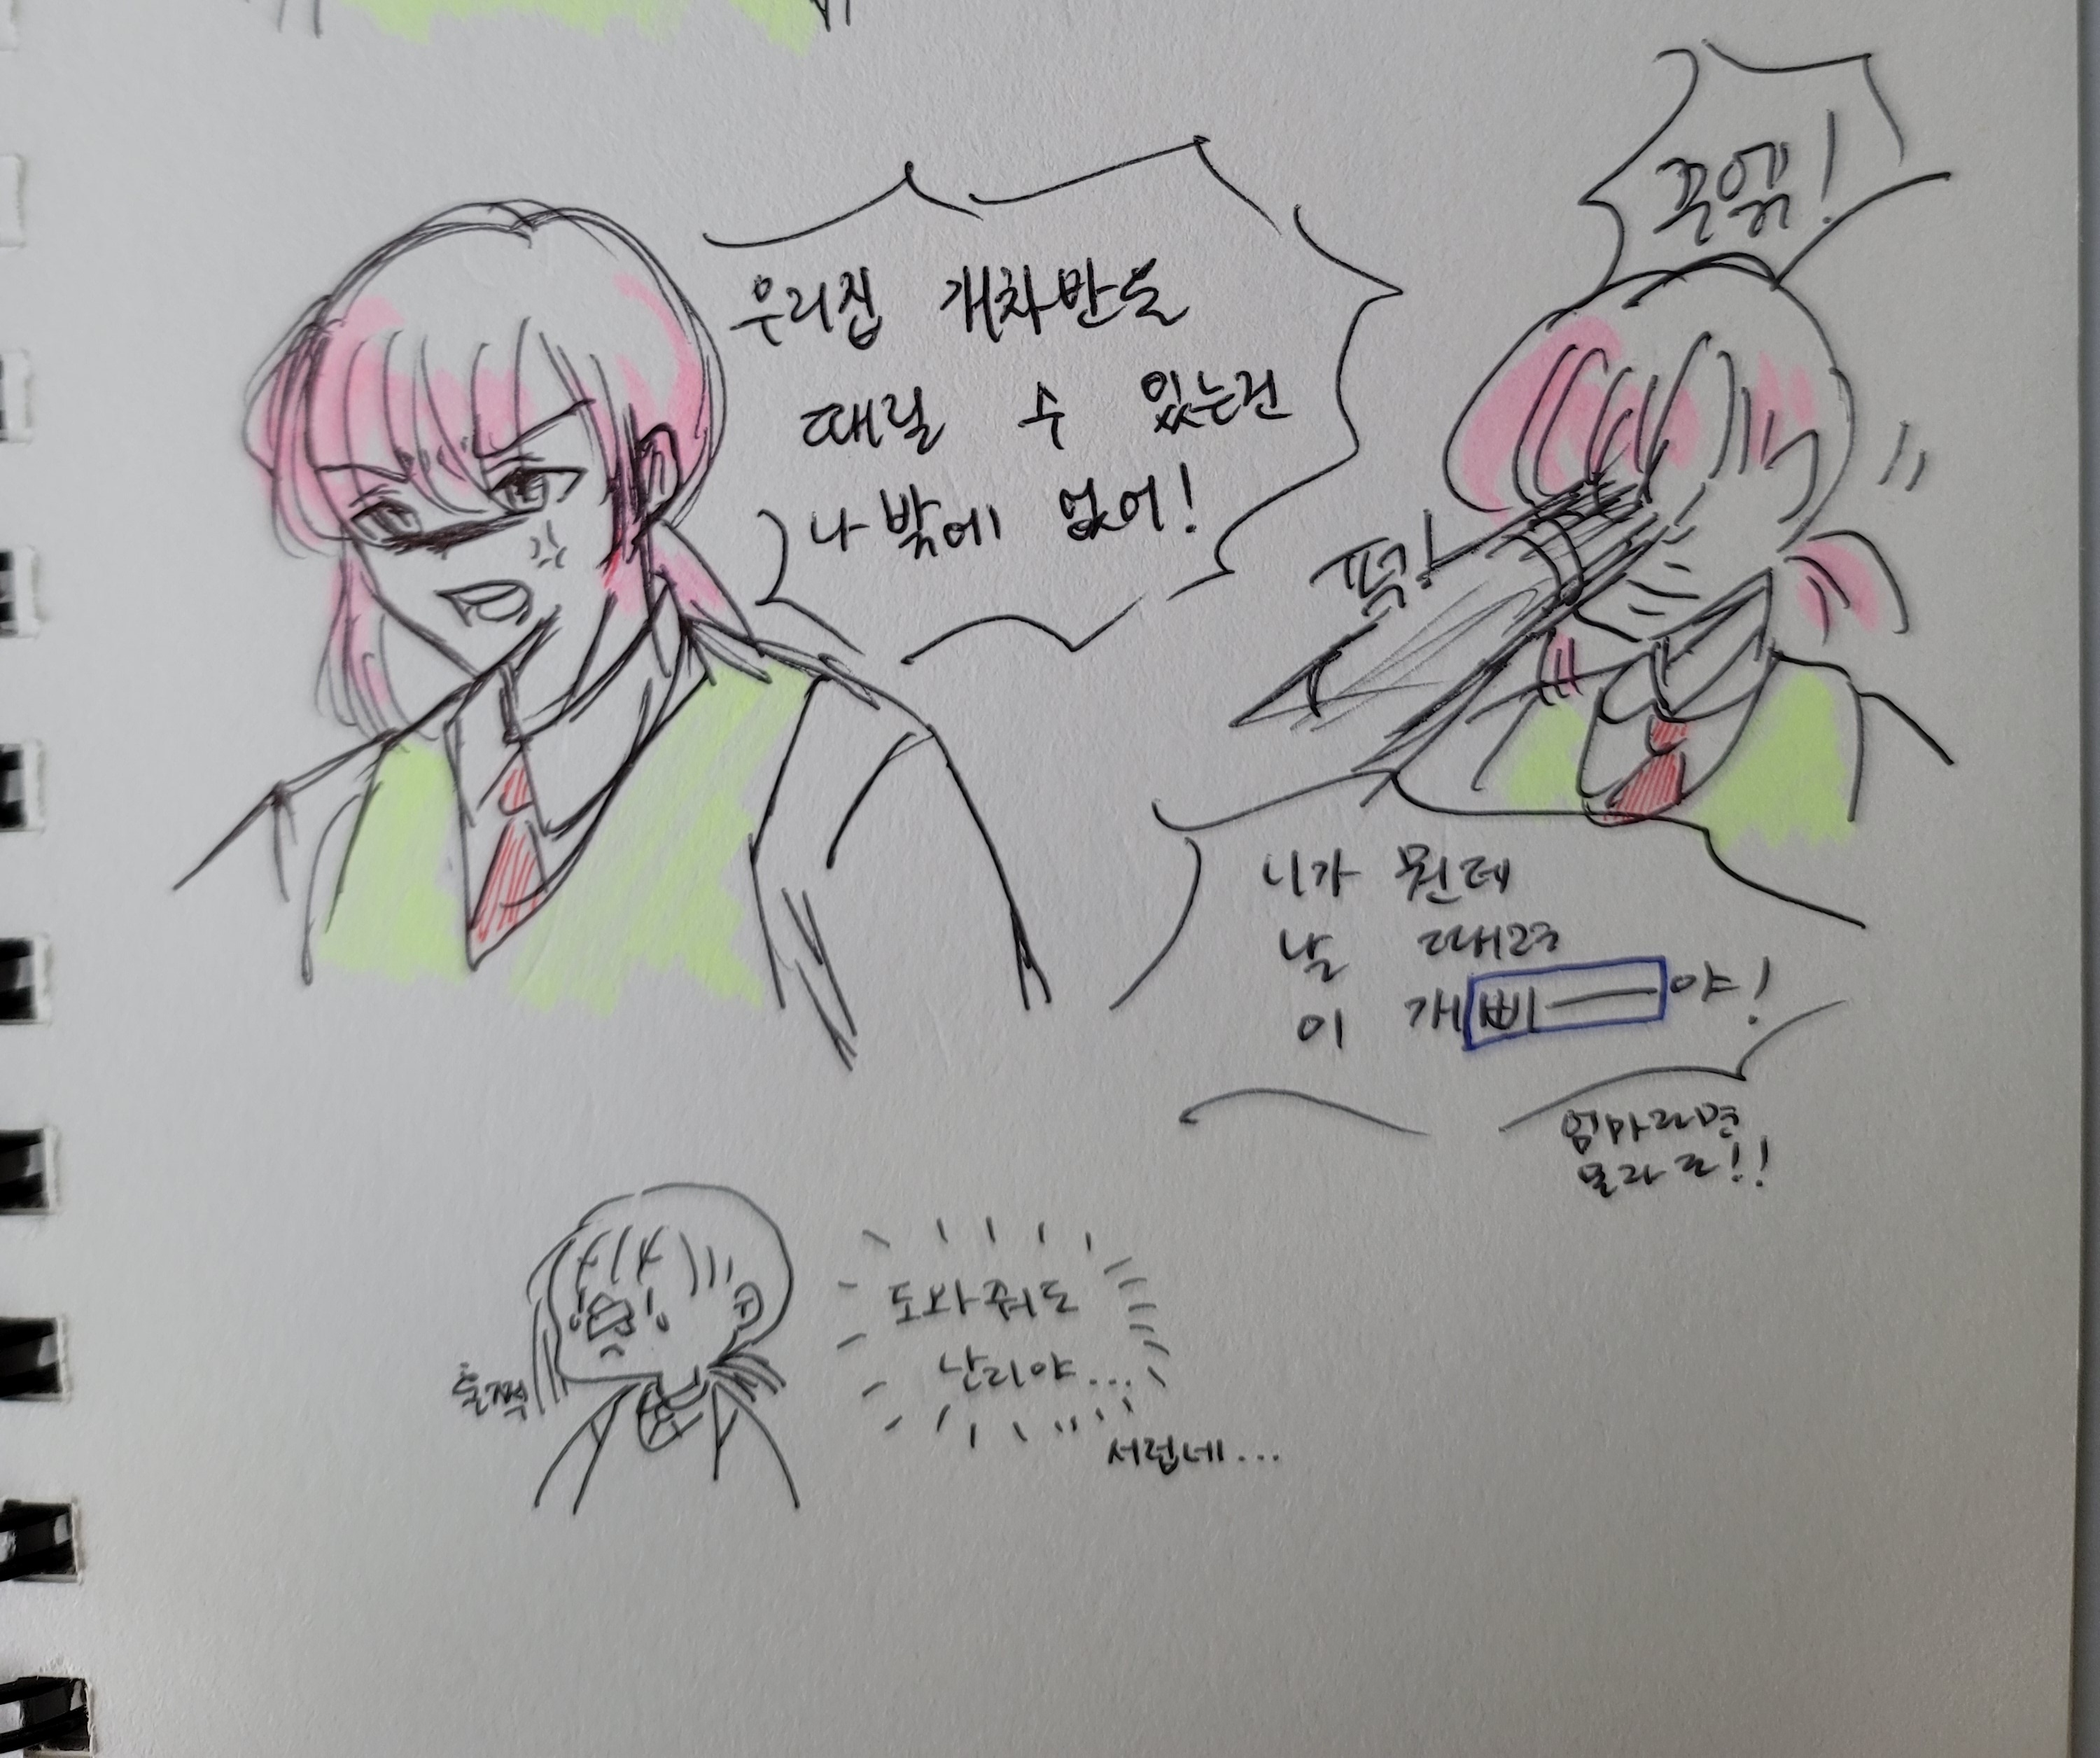 우리집 개차반도
때릴 수 있는건
나밖에 없어!
꾸엙!
퍽
니가 뭔데
날 때려
이 개삐ㅡ야!
엄마라면
몰라도!!
훌쩍
도와줘도
난리야...
서럽네...